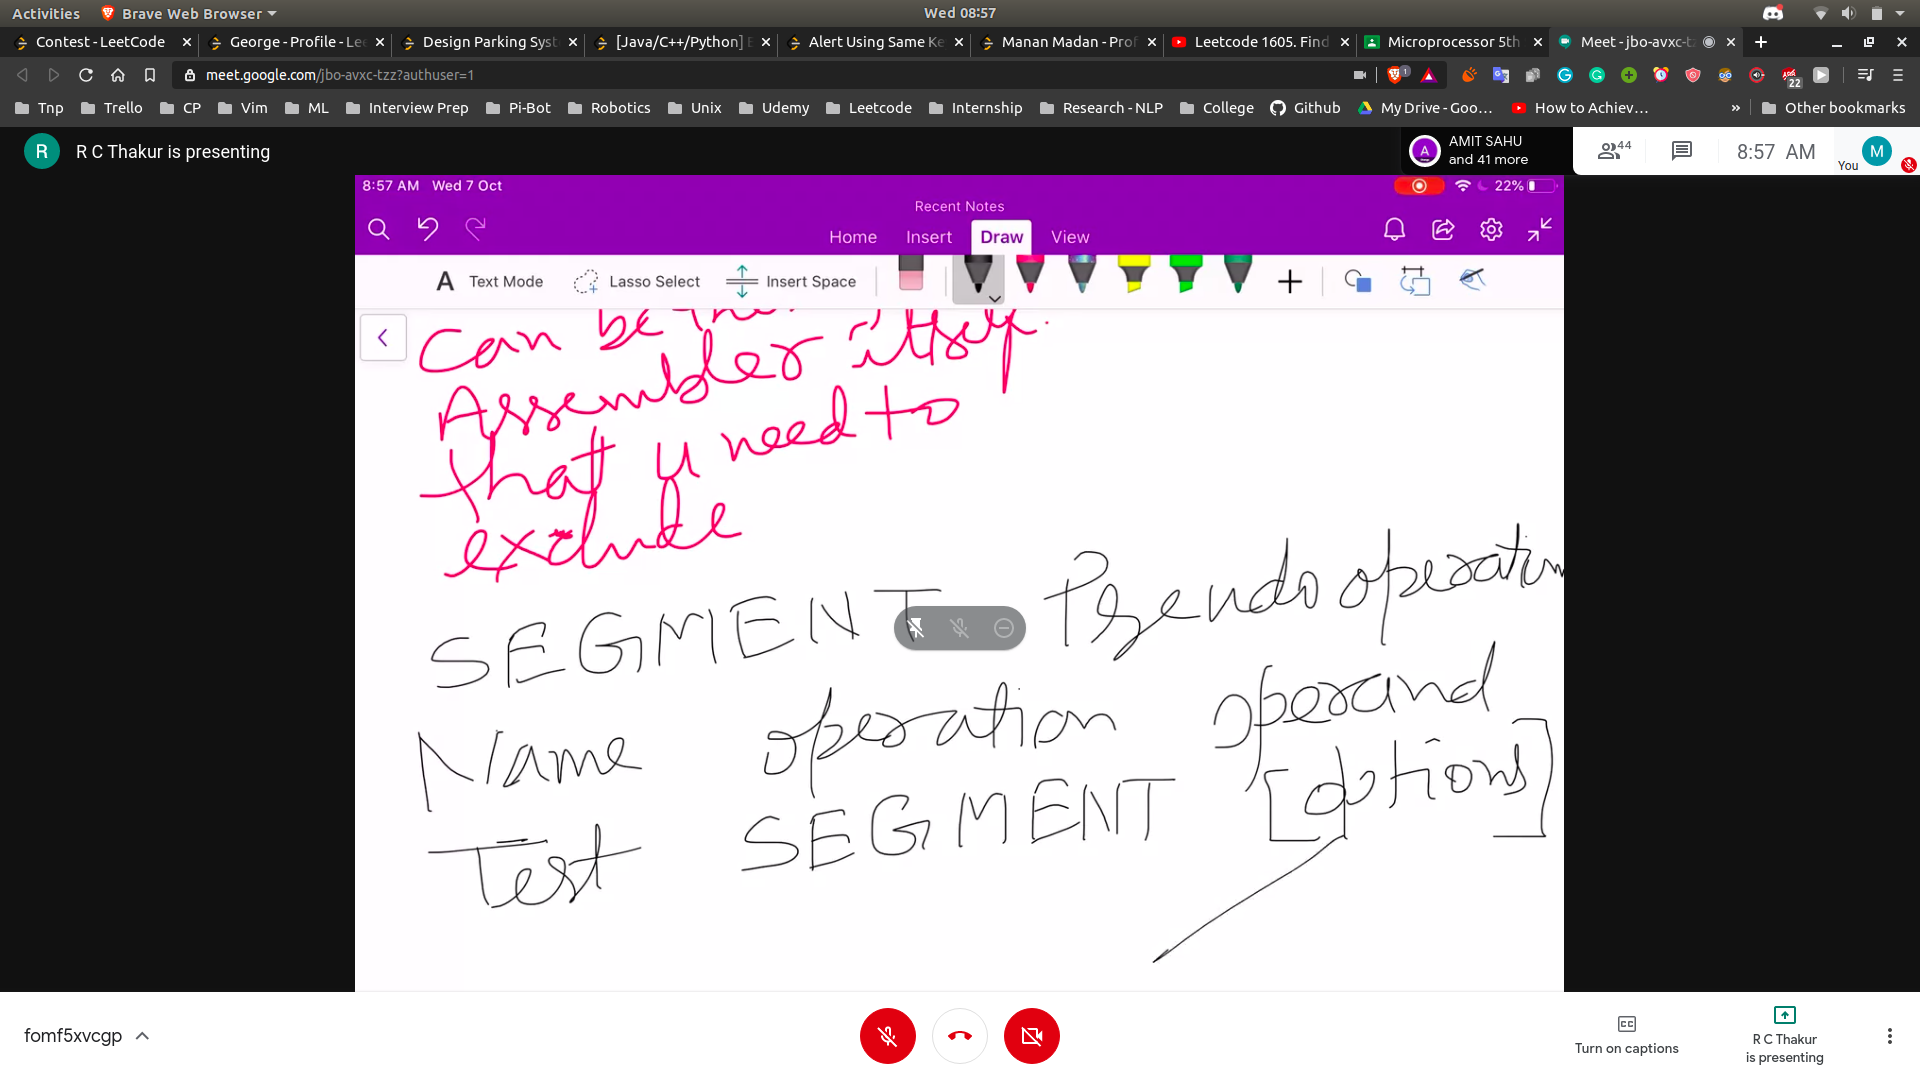 Activities Brave Web Browser Wed 08:57
Contest - LeetCode George - Profile - Le Design Parking Syst [Java/C++/Python] E Alert Using Same Ke Manan Madan - Prof Leetcode 1605. Find Microprocessor 5th Meet - jbo-avxc-tz
meet.google.com/jbo-avxc-tzz?authuser=1 1 22
Tnp Trello CP Vim ML Interview Prep Pi-Bot Robotics Unix Udemy Leetcode Internship Research - NLP College Github My Drive - Goo… How to Achiev… » Other bookmarks
R R C Thakur is presenting A AMIT SAHU
and 41 more
44 8:57 AM You M
8:57 AM Wed 7 Oct 22%
Recent Notes
Home Insert Draw View
A Text Mode Lasso Select Insert Space
Can be
Assembler itself.
that u need to
exclude
SEGMENT Pseudo operation
Name operation operand
Test SEGMENT [options]
fomf5xvcgp
Turn on captions
R C Thakur
is presenting